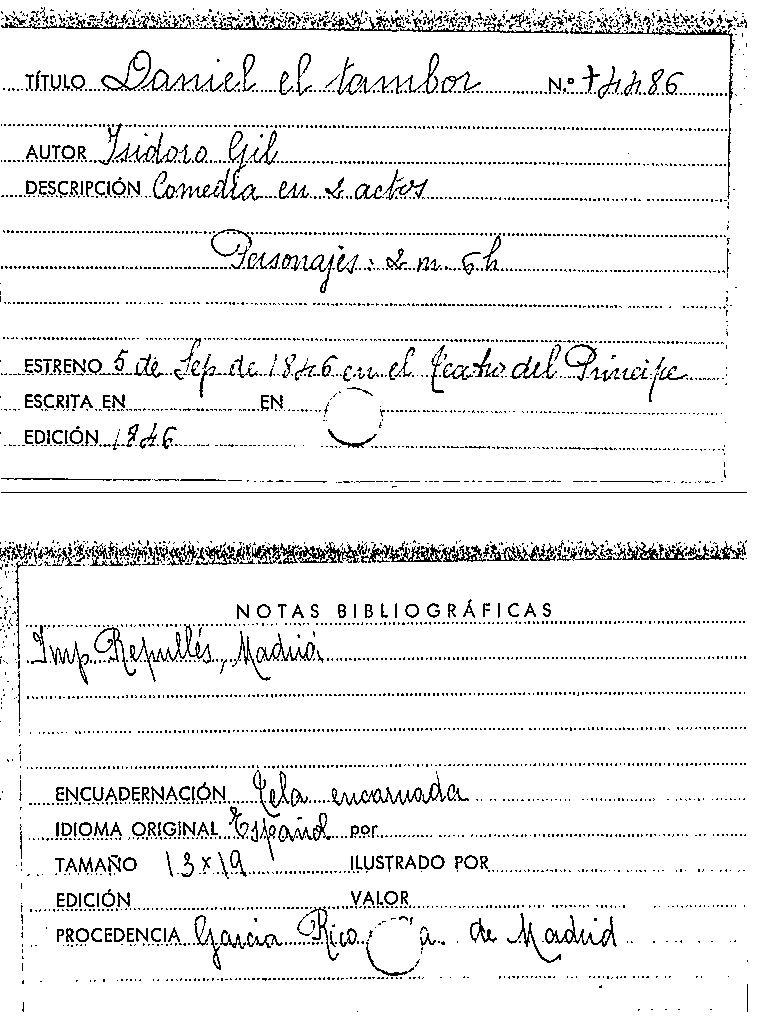 TÍTULO Daniel el tambor N.º +4486
AUTOR Isidoro Gil
DESCRIPCIÓN Comedia en 2 actos
Personajes: 2 m. 6 h
ESTRENO 5 de Sep de 1846 en el Teatro del Príncipe
ESCRITA EN EN
EDICIÓN 1846
NOTAS BIBLIOGRÁFICAS
Imp. Repullés, Madrid
ENCUADERNACIÓN Tela encarnada
IDIOMA ORIGINAL Español por
TAMAÑO 13 x 19 ILUSTRADO POR
EDICIÓN VALOR
PROCEDENCIA Garcia Rico de Madrid